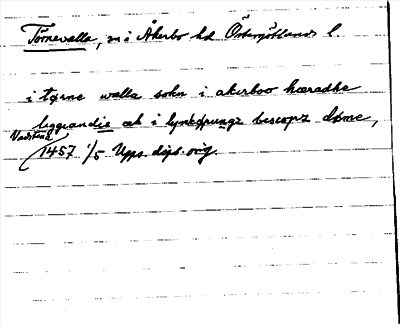 Törnevalla, sn i Åkerbo hd Östergötlands l.
i tørne walla sokn i akerboo hæradhe
liggiandis ok i lynkøpungz biscopz døme,
Vadstena
1457 1/5 Upps. dipl. orig.